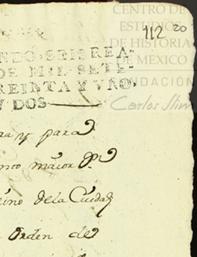 CENTRO DE
ESTUDIOS
DE HISTORIA
DE MEXICO
FUNDACIÓN
Carlos Slim
112 20
NDO, SEIS REA-
DE MIL SETE-
REINTA Y VNO,
Y DOS
ra y para
maior
ino de la Ciudad
orden de